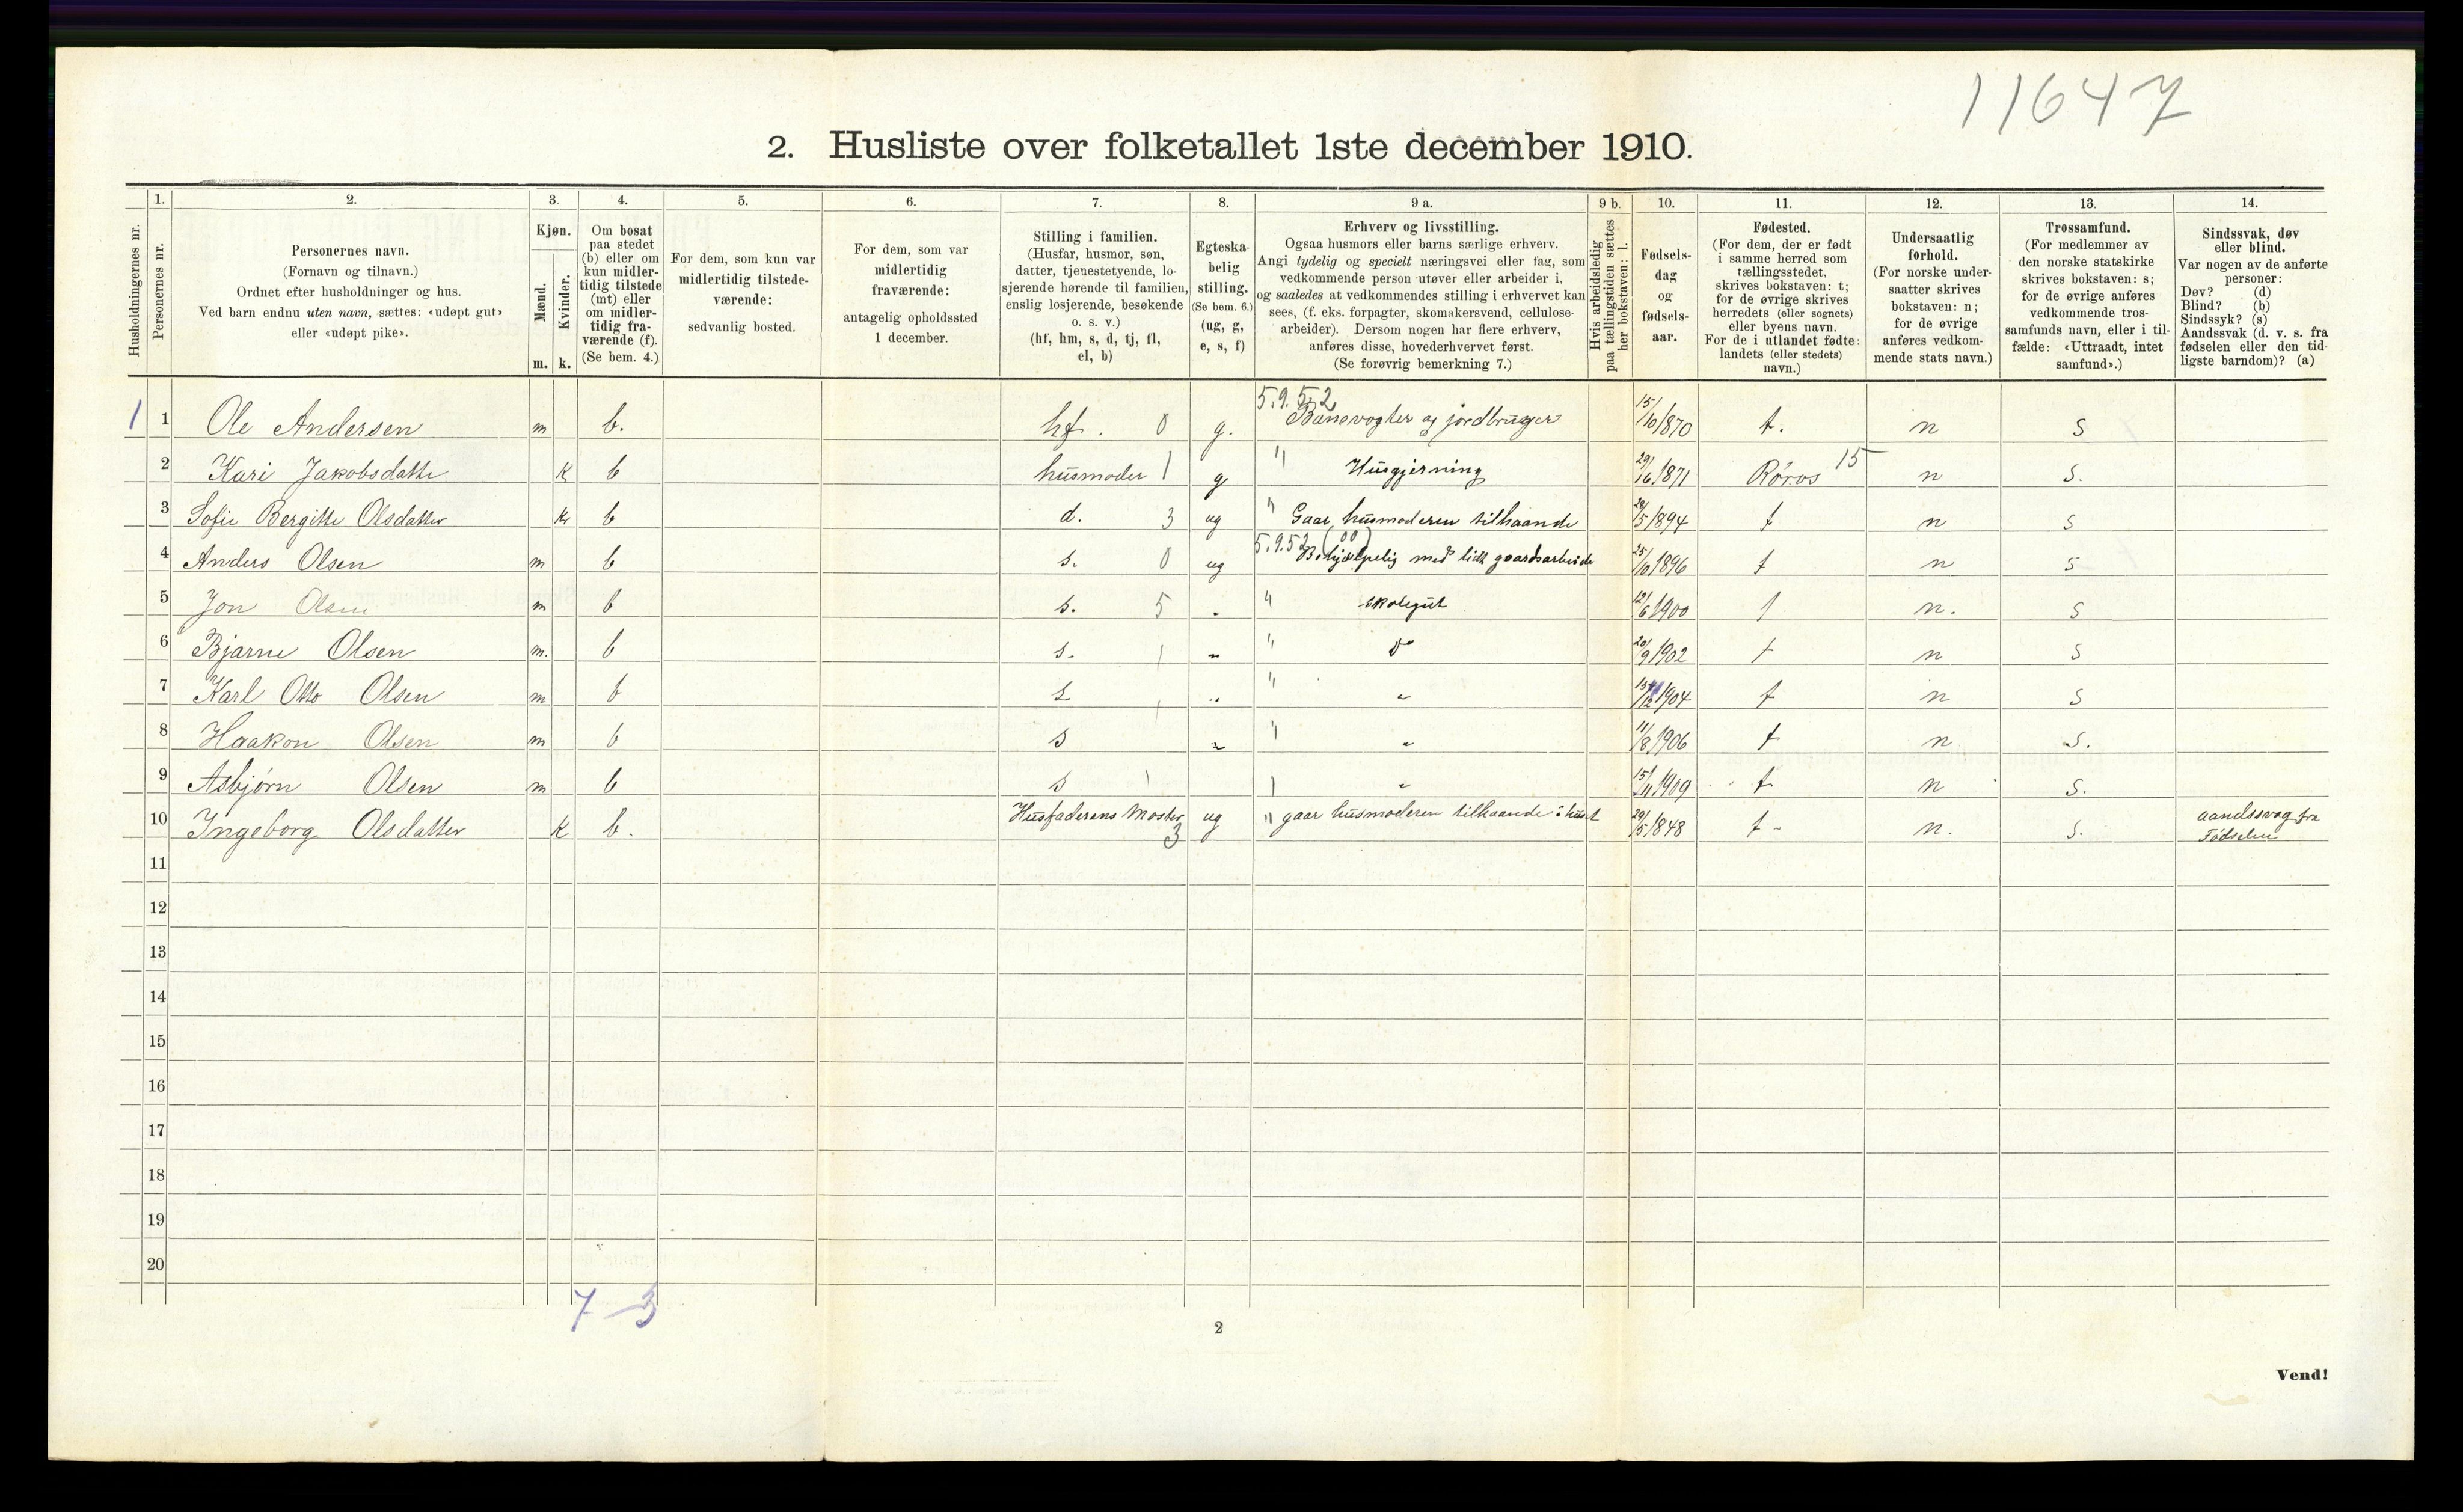 11647
2. Husliste over folketallet 1ste december 1910.
Husholdningernes nr.
1.
Personernes nr.
2.
Personernes navn.
(Fornavn og tilnavn.)
Ordnet efter husholdninger og hus.
Ved barn endnu uten navn, sættes: «udøpt gut»
eller «udøpt pike».
3.
Kjøn.
Mænd.
Kvinder.
m. k.
4.
Om bosat
paa stedet
(b) eller om
kun midler-
tidig tilstede
(mt) eller
om midler-
tidig fra-
værende (f).
(Se bem. 4.)
5.
For dem, som kun var
midlertidig tilstede-
værende:
sedvanlig bosted.
6.
For dem, som var
midlertidig
fraværende:
antagelig opholdssted
1 december.
7.
Stilling i familien.
(Husfar, husmor, søn,
datter, tjenestetyende, lo-
sjerende hørende til familien,
enslig losjerende, besøkende
o. s. v.)
(hf, hm, s, d, tj, fl,
el, b)
8.
Egteska-
belig
stilling.
(Se bem. 6.)
(ug, g,
e, s, f)
9 a.
Erhverv og livsstilling.
Ogsaa husmors eller barns særlige erhverv.
Angi tydelig og specielt næringsvei eller fag, som
vedkommende person utøver eller arbeider i,
og saaledes at vedkommendes stilling i erhvervet kan
sees, (f. eks. forpagter, skomakersvend, cellulose-
arbeider). Dersom nogen har flere erhverv,
anføres disse, hovederhvervet først.
(Se forøvrig bemerkning 7.)
9 b.
Hvis arbeidsledig
paa tællingstiden sættes
her bokstaven: l.
10.
Fødsels-
dag
og
fødsels-
aar.
11.
Fødested.
(For dem, der er født
i samme herred som
tællingsstedet,
skrives bokstaven: t;
for de øvrige skrives
herredets (eller sognets)
eller byens navn.
For de i utlandet fødte:
landets (eller stedets)
navn.)
12.
Undersaatlig
forhold.
(For norske under-
saatter skrives
bokstaven: n;
for de øvrige
anføres vedkom-
mende stats navn.)
13.
Trossamfund.
(For medlemmer av
den norske statskirke
skrives bokstaven: s;
for de øvrige anføres
vedkommende tros-
samfunds navn, eller i til-
fælde: «Uttraadt, intet
samfund».)
14.
Sindssvak, døv
eller blind.
Var nogen av de anførte
personer:
Døv? (d)
Blind? (b)
Sindssyk? (s)
Aandssvak (d. v. s. fra
fødselen eller den tid-
ligste barndom)? (a)
5.9.5.2
1 1 Ole Andersen m b. hf. 0 g. Banevogter og jordbruger 15/10/870 t. n s
2 Kari Jakobsdatte K b husmoder 1 g " Husgjerning 29/6/1871 Røros 15 n s.
3 Sofie Bergitte Olsdatter K b d. 3 ug " Gaar husmoderen tilhaande 28/5/1894 t n s
5.9.52 (00)
4 Anders Olsen m b s. 0 ug Behjælpelig med lidt gaardsarbeide 25/10/1896 t n s
5 Jon Olsen m b s. 5 " " skolegut 12/6/1900 t n. s
6 Bjarne Olsen m. b s. 1 " " do 20/9/1902 t n s
7 Karl Otto Olsen m b s 1 " " " /12/1904 t n s
8 Haakon Olsen m b s " " " 11/8/1906 t n s.
9 Asbjørn Olsen m b s 1 " 15/11/1909 t n s.
10 Ingeborg Olsdatter K b. Husfaderens Moster 3 ug " gaar husmoderen tilhaande i huset 29/5/1848 t n. s. aandssvag fra
Fødselen
11
12
13
14
15
16
17
18
19
20
7-3
2
Vend!